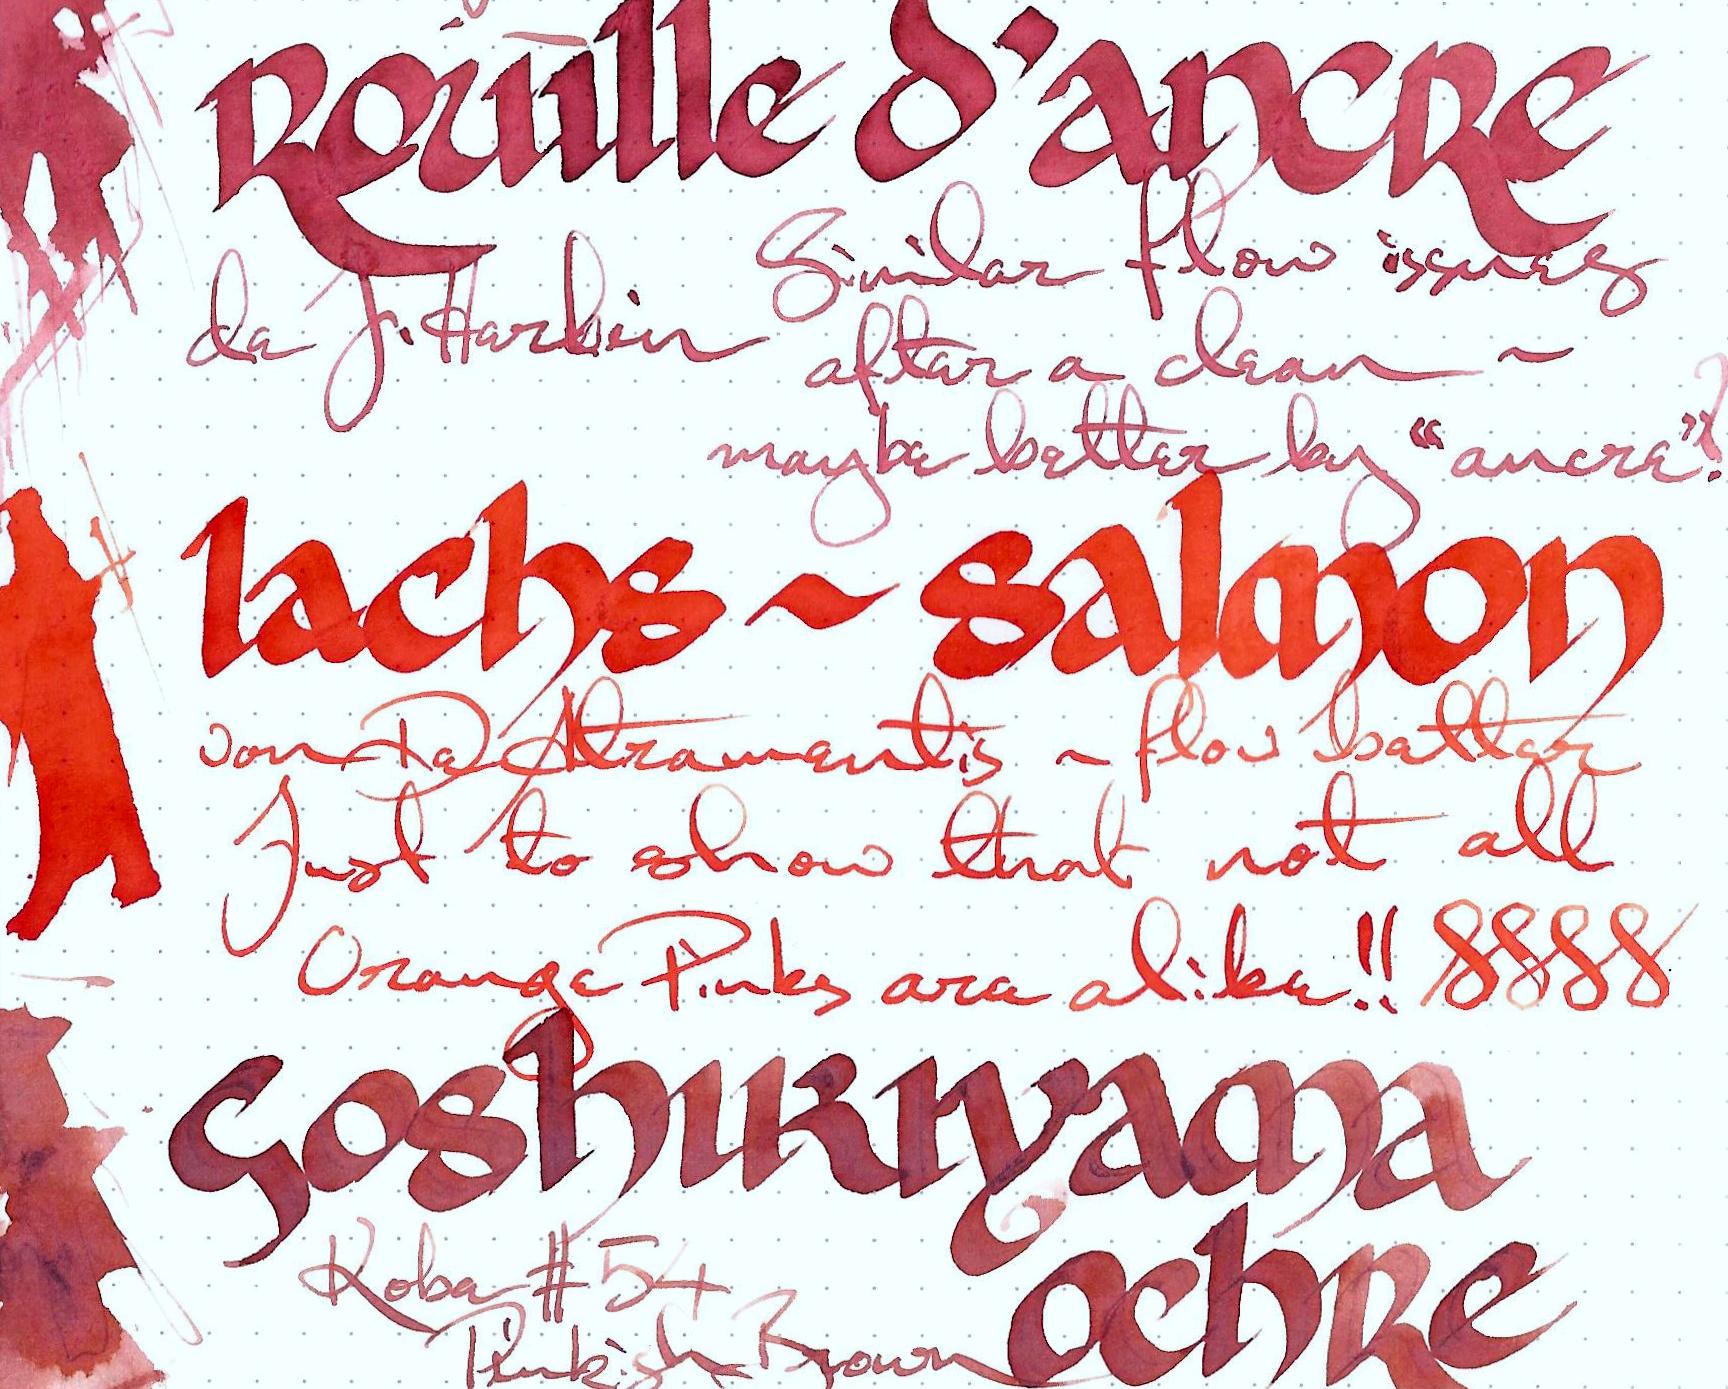 Rouille d'ancre
Similar flow issues
de J. Harbin
after a clean ~
maybe better by "ancre"?
lachs ~ salmon
von De Atramentis ~ flow better
Just to show that not all
Orange Pinks are alike!! 8888
Goshikiyama
Kobe #54
ochre
Pinkish Brown